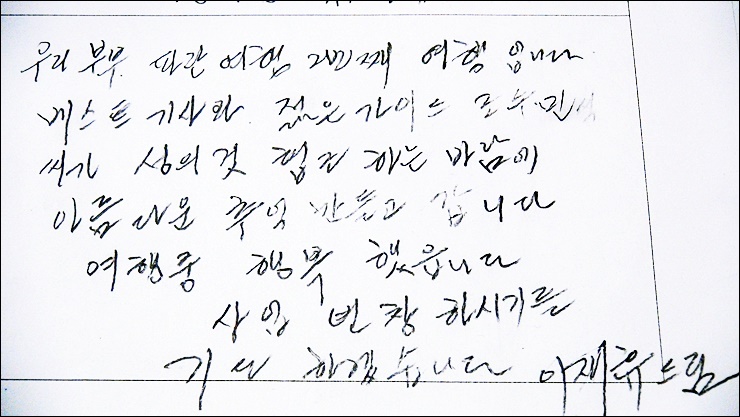 우리 부부 파란 여행 2번째 여행 입니다
베스트 기사와 젊은 가이드
씨가 성의것 협조 하는 바람에
아름다운 추억 만들고 갑니다
여행중 행복 했읍니다
사업 번창 하시기를
기도 하겠습니다 드림